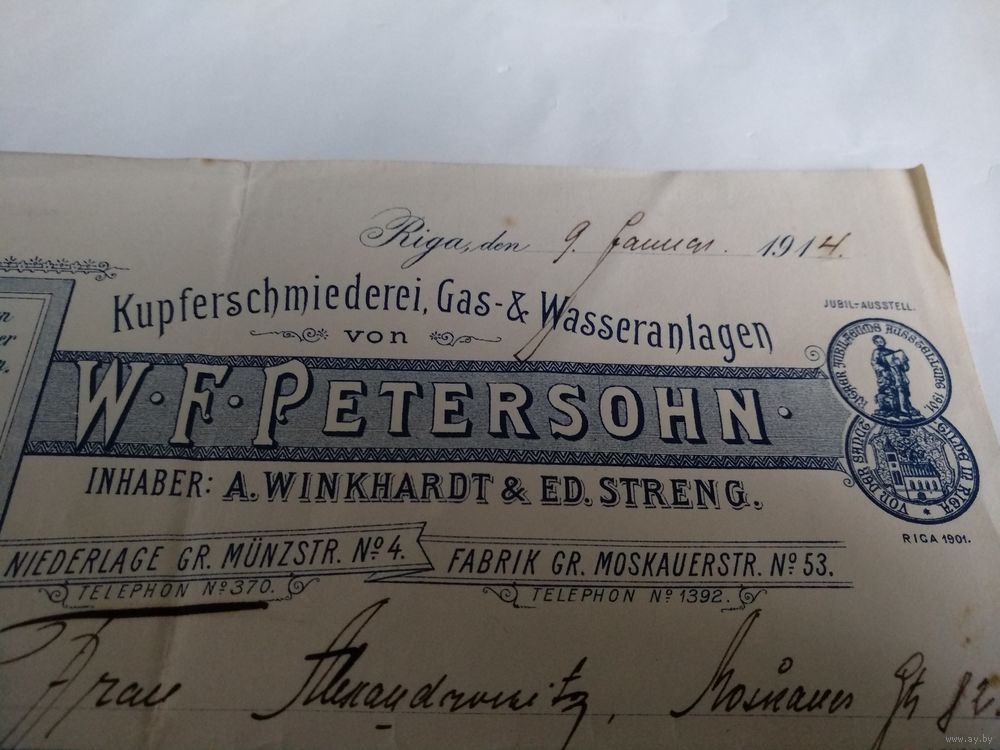 Riga, den 9. Januar. 1914.
Kupferschmiederei, Gas- & Wasseranlagen
von
W. F. PETERSOHN.
INHABER: A. WINKHARDT & ED. STRENG.
JUBIL-AUSSTELL.
RIGAER JUBILÄUMS AUSSTELLUNG 1901.
GILDE IN RIGA
RIGA 1901.
NIEDERLAGE GR. MÜNZSTR. No 4.
TELEPHON No 370.
FABRIK GR. MOSKAUERSTR. No 53.
TELEPHON No 1392.
Frau Alexandrowitz, Moskauer Str 82.
n
er
n.
www.ay.by